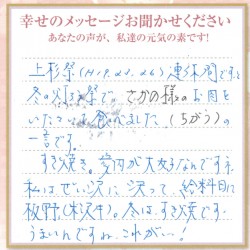 幸せのメッセージお聞かせください
あなたの声が、私達の元気の素です!
上杉祭(H19.4.26)連休間です
冬の 祭で、さかの様のお肉を
いた 食べました(ちがう)の
一言です。
すき焼き。家内が大好なんですネ
私はぜい沢に沢って、絵料日に
板野(米沢牛)。冬は、すき焼です。
うまいんですね これが…!